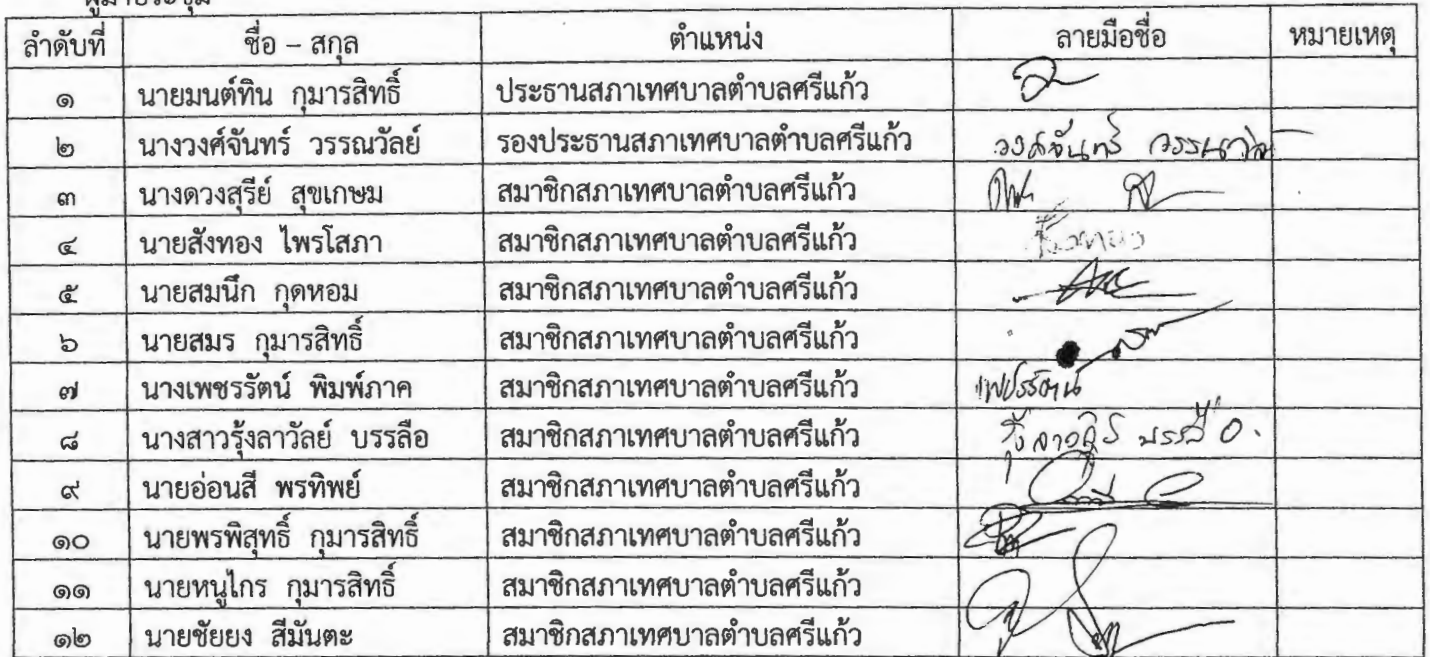 ผู้มาประชุม
ลำดับที่ ชื่อ – สกุล ตำแหน่ง ลายมือชื่อ หมายเหตุ
๑ นายมนต์ทิน กุมารสิทธิ์ ประธานสภาเทศบาลตำบลศรีแก้ว
๒ นางวงศ์จันทร์ วรรณวัลย์ รองประธานสภาเทศบาลตำบลศรีแก้ว วงศ์จันทร์
๓ นางดวงสุรีย์ สุขเกษม สมาชิกสภาเทศบาลตำบลศรีแก้ว
๔ นายสังทอง ไพรโสภา สมาชิกสภาเทศบาลตำบลศรีแก้ว
๕ นายสมนึก กุดหอม สมาชิกสภาเทศบาลตำบลศรีแก้ว
๖ นายสมร กุมารสิทธิ์ สมาชิกสภาเทศบาลตำบลศรีแก้ว
๗ นางเพชรรัตน์ พิมพ์ภาค สมาชิกสภาเทศบาลตำบลศรีแก้ว เพชรรัตน์
๘ นางสาวรุ้งลาวัลย์ บรรลือ สมาชิกสภาเทศบาลตำบลศรีแก้ว
๙ นายอ่อนสี พรทิพย์ สมาชิกสภาเทศบาลตำบลศรีแก้ว
๑๐ นายพรพิสุทธิ์ กุมารสิทธิ์ สมาชิกสภาเทศบาลตำบลศรีแก้ว
๑๑ นายหนูไกร กุมารสิทธิ์ สมาชิกสภาเทศบาลตำบลศรีแก้ว
๑๒ นายชัยยง สีมันตะ สมาชิกสภาเทศบาลตำบลศรีแก้ว